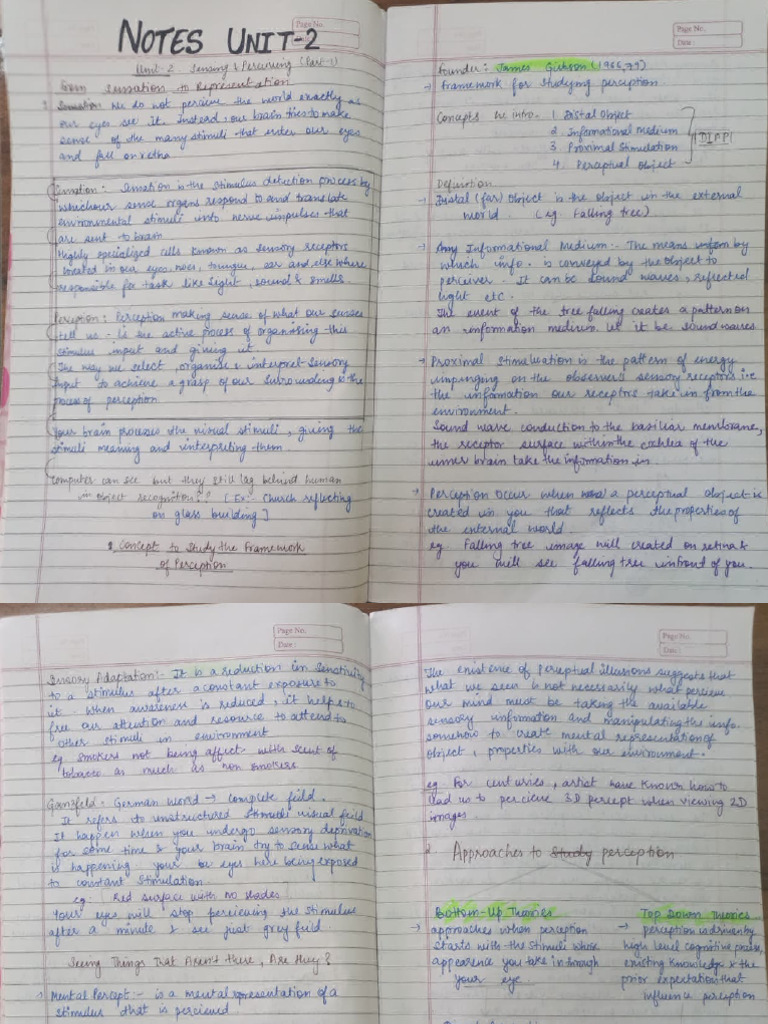 NOTES UNIT-2
Page No.
Date:
Unit-2 Sensing & Perceiving (Part-1)
From Sensation to Representation
Sensation We do not perceive the world exactly as
our eyes see it. Instead our brain tries to make
sense of the many stimuli that enter our eyes
and fall on retna
Sensation: Sensation is the stimulus detection process by
which our sense organs respond to and translate
environmental stimuli into nerve impulses that
are sent to brain
Highly specialized cells known as sensory receptors
located in our eyes, nose, toungue, ear and else where
responsible for task like light, sound & smells.
Perception: Perception making sense of what our senses
tell us - is the active process of organising this
stimulus input and giving it
The way we select, organise & interpret sensory
input to achieve a grasp of our surrounding is the
process of perception
Your brain processes the visual stimuli, giving the
stimuli meaning and interpreting them.
Computer can see but they still lag behind human
in object recognition?? [Ex:- Church reflecting
on glass building]
Concept to Study the Framework
of Perception
Page No.
Date:
Founder: James Gibson (1966, 79)
→ Framework for studying perception
Concepts he intro. 1. Distal Object
2. Informational Medium
3. Proximal Stimulation
4. Perceptual Object
DIAP
Definition
→ Distal (far) Object is the object in the external
world. (eg. Falling tree)
→ Informational Medium:- The means by
which info. is conveyed by the object to
perceiver. It can be sound waves, reflected
light etc.
The event of the tree falling creates a pattern on
an information medium let it be sound waves
→ Proximal Stimulation is the pattern of energy
impinging on the observer's sensory receptors i.e
the information our receptors take in from the
environment.
Sound wave conduction to the basiliar membrane,
the receptor surface within the cochlea of the
inner brain take the information in.
→ Perception Occur when a perceptual object is
created in you that reflects the properties of
the external world.
eg. Falling tree image will created on retina &
you will see falling tree infront of you.
Page No.
Date:
Sensory Adaptation:- It is a reduction in sensitivity
to a stimulus after a constant exposure to
it. When awareness is reduced, it helps to
free our attention and resource to attend to
other stimuli in environment
eg smokers not being affect with scent of
tobacco as much as non smokers
Ganzfeld - German word → complete field.
It refers to unstructured stimuli visual field
It happen when you undergo sensory deprivation
for some time & your brain try to sense what
is happening. your eyes here being exposed
to constant stimulation.
eg. Red surface with no shades
Your eyes will stop percieving the stimulus
after a minute & see just grey field.
Seeing Things That Aren't there, Are they?
Mental Percept:- is a mental representation of a
stimulus that is percieved
Page No.
Date:
The existence of Perceptual Illusions suggests that
what we seen is not necessarily what percieve
our mind must be taking the available
sensory information and manipulating the info.
somehow to create mental representation of
object, properties with our environment.
eg. For centuries, artist have known how to
lead us to percieve 3D percept when viewing 2D
images
2. Approaches to Study perception
Bottom-Up Theories
→ approaches when perception
starts with the stimuli whose
appearence you take in through
your eye.
Top Down Theories
→ perception is driven by
high level cognitive process,
existing knowledge & the
prior expectation that
influence perception